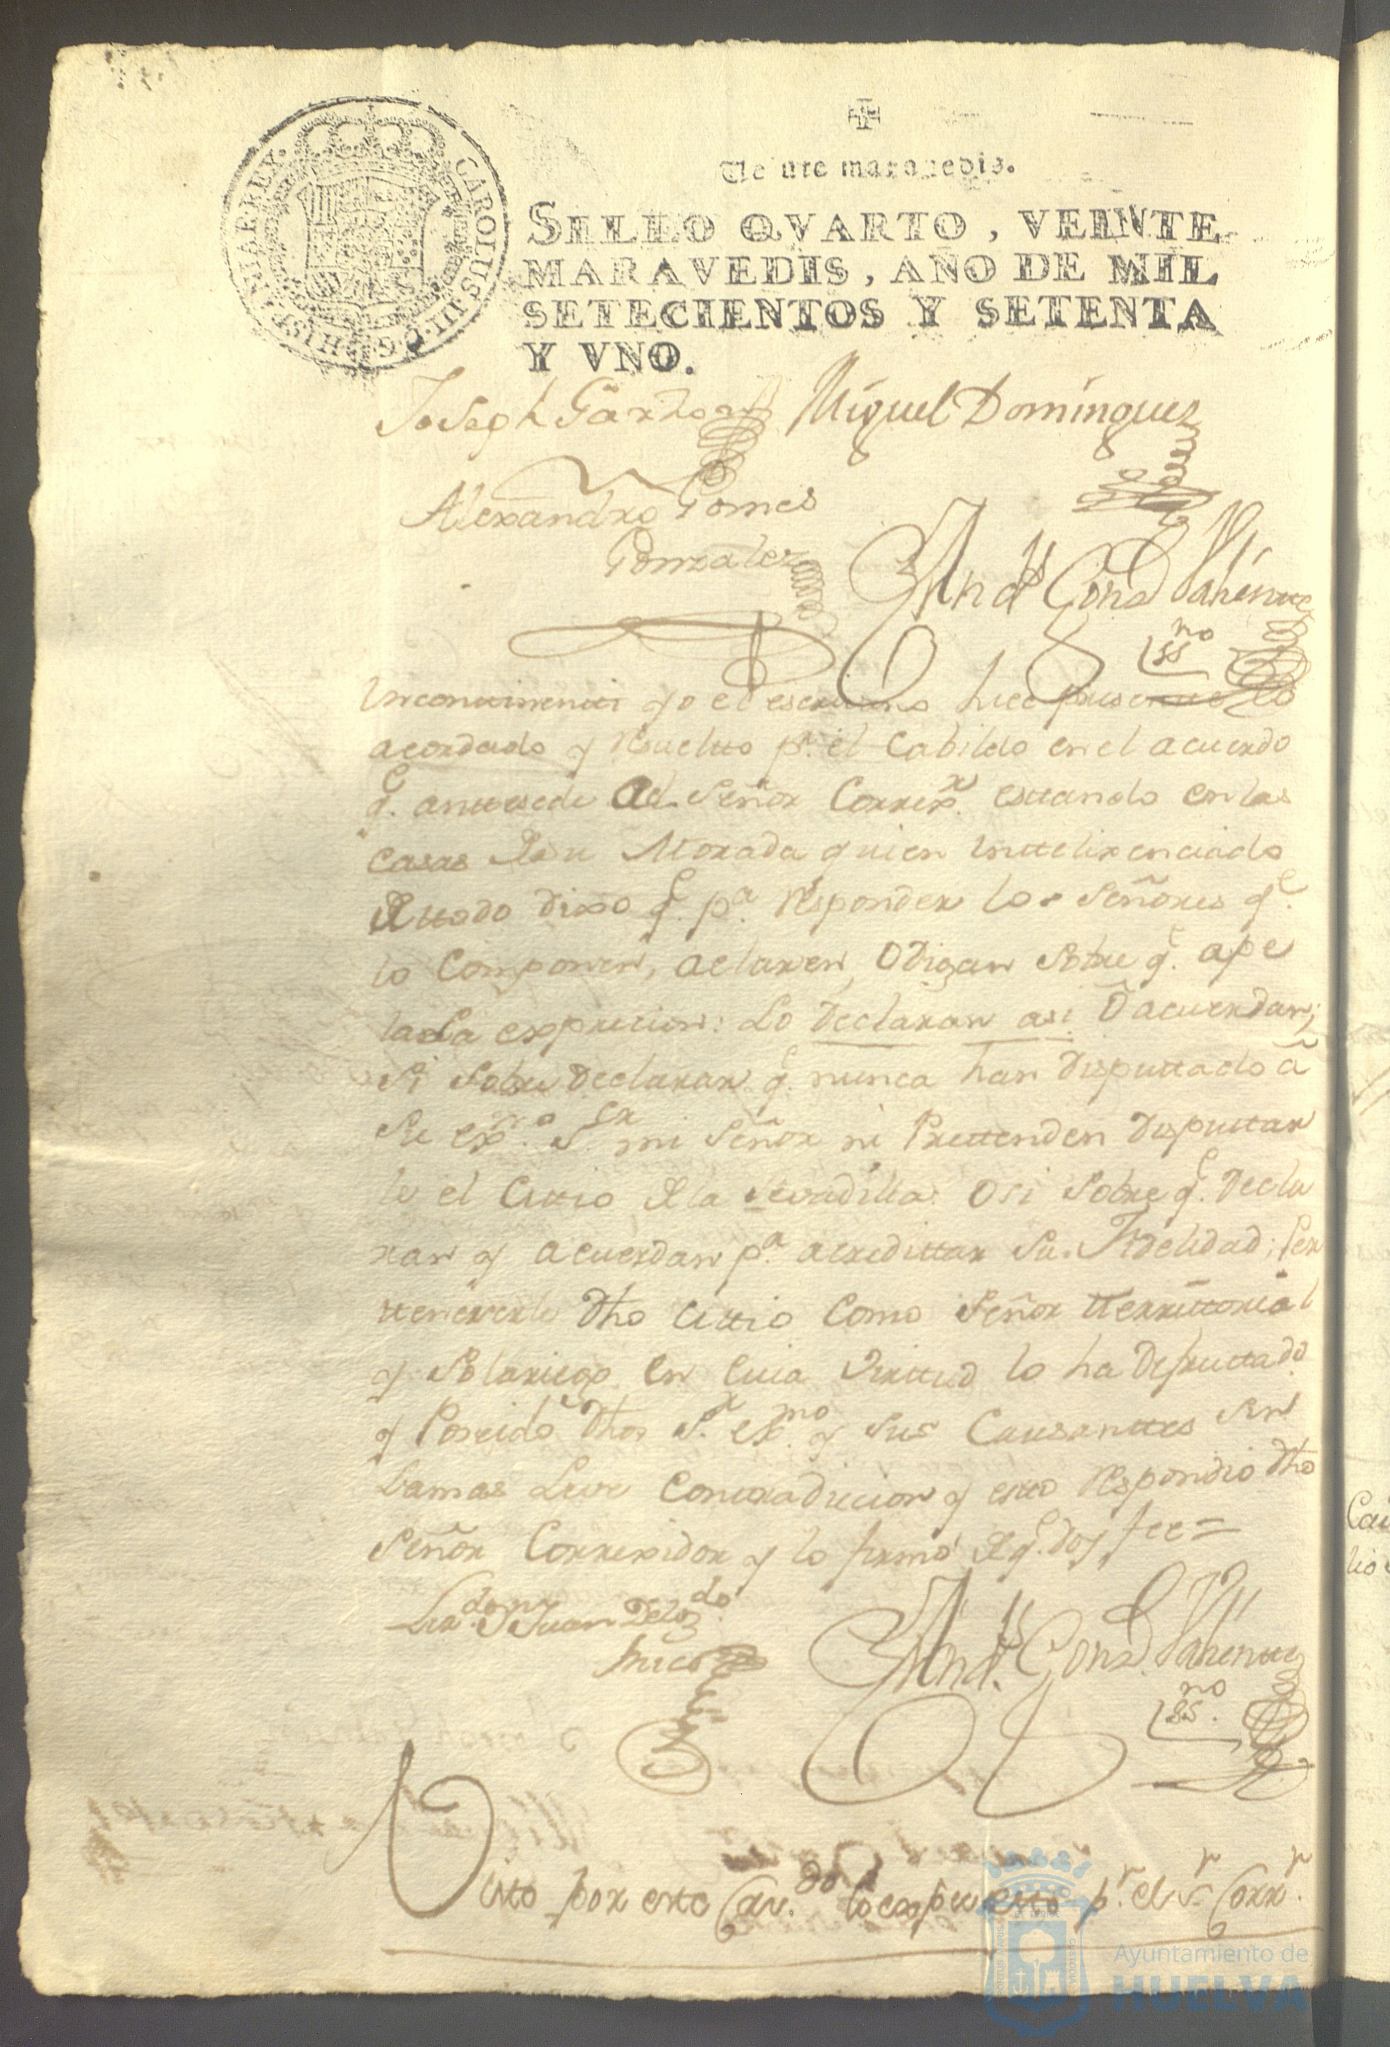 CAROLUS III D G HISPANIAR REX
Veinte maravedis.
SELLO QVARTO, VEINTE
MARAVEDIS, AÑO DE MIL
SETECIENTOS Y SETENTA
Y VNO.
Joseph Garzia Miguel Dominguez
Alexandro Gomes
Gonzalez
Andˢ Gonz
ssⁿᵒ
Yncontinenti yo el escrivano hice presente lo
acordado y resuelto pʳ. el Cabildo en el acuerdo
qᵉ. antesede al Señor Correxʳ. estando en las
casas de su Morada quien Inttelixenciado
de ttodo dixo qᵉ. pᵃ. responder los Señores qᵉ.
lo Componen, aclaren, o digan sobre qᵉ. ape
la la exprecion: Lo Declaran asi o acuerdan;
Si sobre Declarar qᵉ. nunca han Disputtado â
Su exᵐᵒ. Sᵒʳ mi Señor ni Prettenden Disputtar
le el Cittio de la Sevadilla: O si sobre qᵉ. Decla
ran y acuerdan pᵃ. acredittar su Fidelidad; Per
ttenecerle Dho Cittio Como Señor Tterrittorial
y Solariego en cuia Virttud lo ha Disfruttado
y Poseido Dho Sʳ. exᵐᵒ y sus Causanttes sin
Jamas Leve Conttradicion y estto respondio Dho
Señor Correxidor y lo firmó de qᵉ. doy fee =
Lizᵈᵒ Dⁿ Juan Delgᵈᵒ
Andˢ. Gonz
ssⁿᵒ.
Visto por este Cavᵈᵒ lo expuesto pʳ. el Sʳ Corrʳ.
Ayuntamiento de
HUELVA